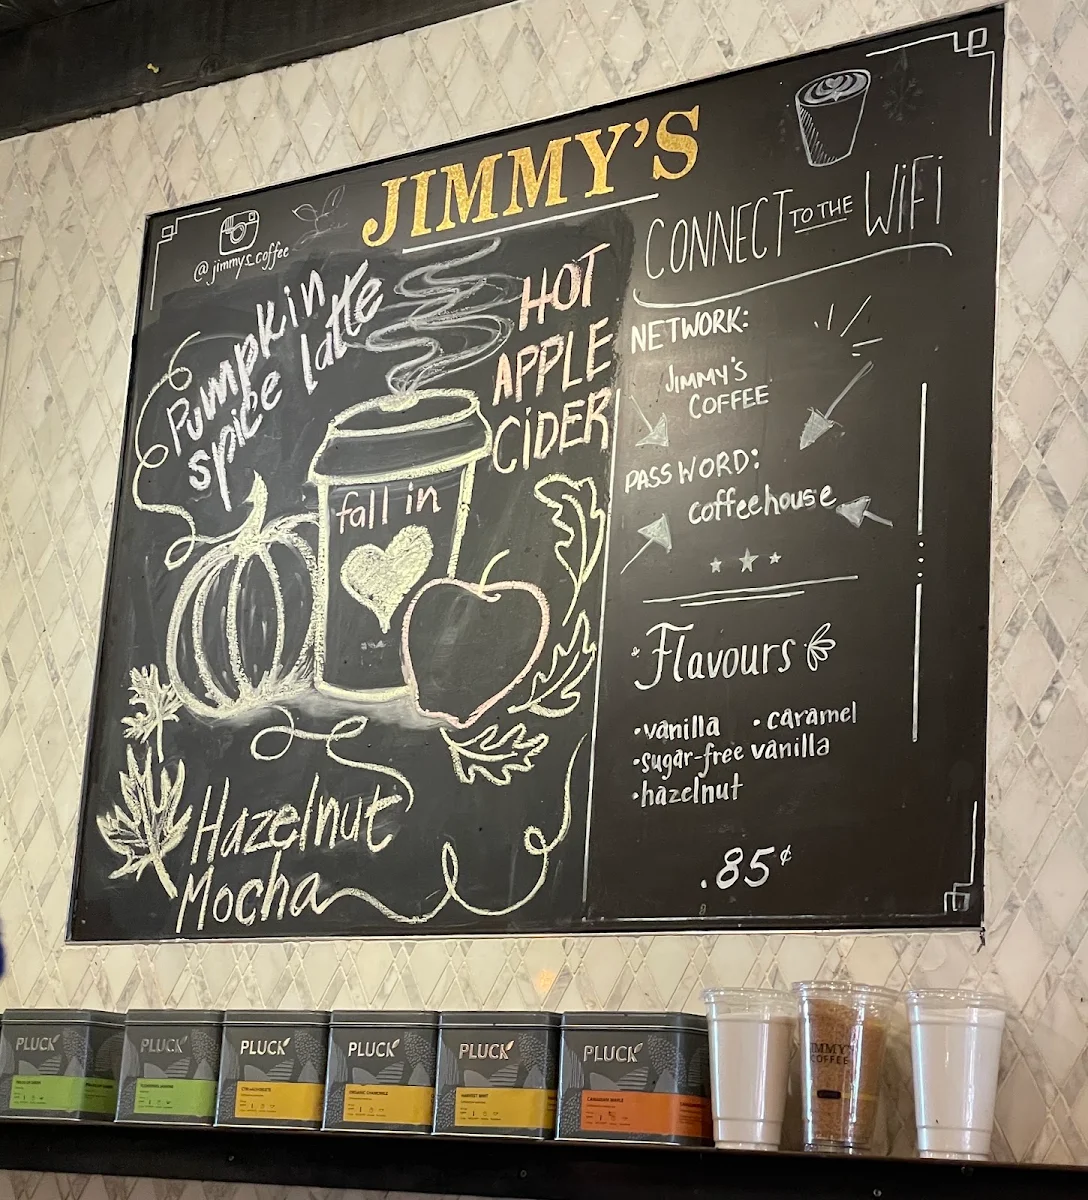 JIMMY'S
@jimmys_coffee
Pumpkin
spice latte
HOT
APPLE
CIDER
fall in
Hazelnut
Mocha
CONNECT TO THE WiFi
NETWORK:
JIMMY'S
COFFEE
PASSWORD:
coffeehouse
Flavours
•vanilla •caramel
•sugar-free vanilla
•hazelnut
.85¢
PLUCK
PLUCK
PLUCK
PLUCK
ORGANIC CHAMOMILE
PLUCK
HARVEST MINT
PLUCK
CANADIAN MAPLE
JIMMY'S
COFFEE